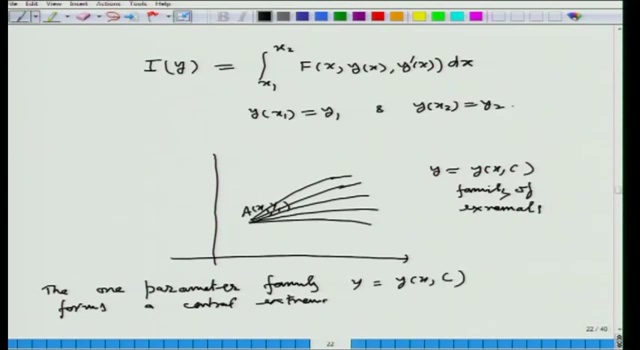 Edit View Insert Actions Tools Help
I(y) = ∫_{x_1}^{x_2} F(x, y(x), y'(x)) dx
y(x_1) = y_1 & y(x_2) = y_2.
y = y(x, C)
family of
exremals
A(x_1, y_1)
The one parameter family y = y(x, C)
forms a central extreme
22 / 40
22